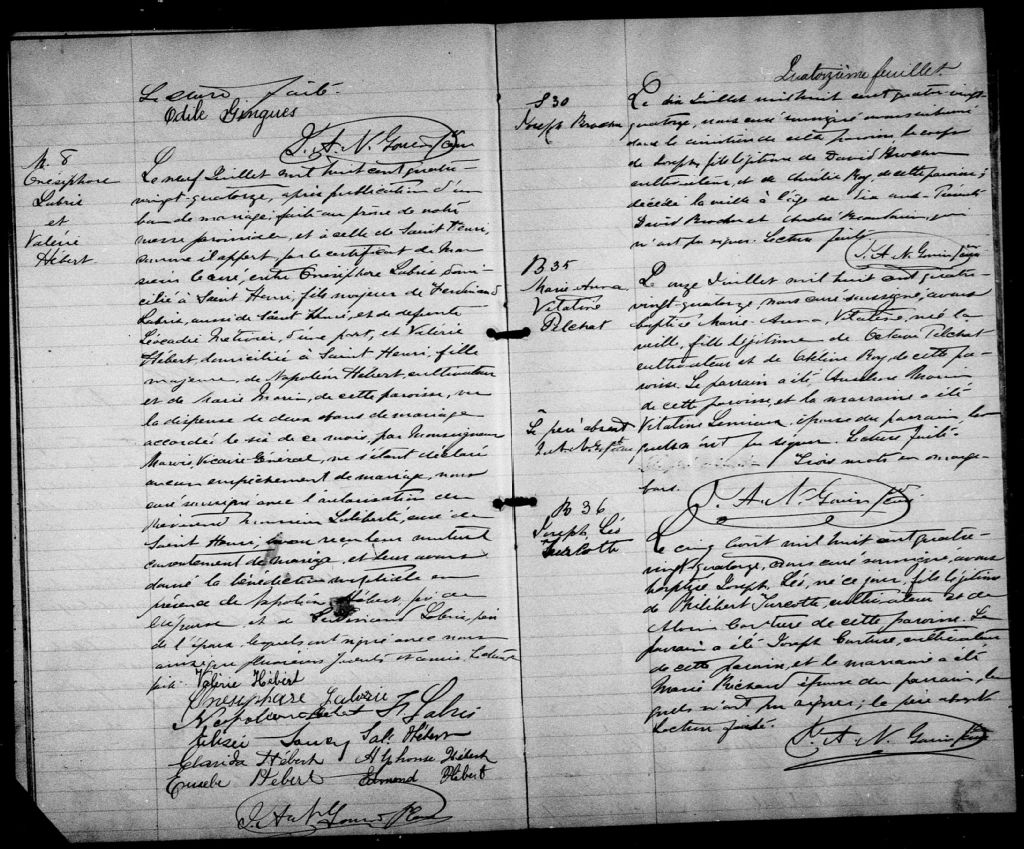 Lecture faite.
Odile Gingues
J. A. N. Gouin Ptre Curé
M. 8
Onésiphore
Labrie
et
Valérie
Hébert.
Le neuf Juillet mil huit cent quatre-
vingt-quatorze, après publication d'un
ban de mariage, faite au prône de notre
messe paroissiale, et à celle de Saint Henri,
comme il appert par le certificat de Mon
sieur le curé, entre Onésiphore Labrie domi-
cilié à Saint Henri, fils majeur de Ferdinand
Labrie, aussi de Saint Henri, et de défunte
Léocadie d'une part, et Valérie
Hébert domiciliée à Saint Henri, fille
majeure, de Napoléon Hébert, cultivateur
et de Marie Morin, de cette paroisse, vu
la dispense de deux bans de mariage
accordée le six de ce mois, par Monseigneur
Marois, Vicaire Général, ne s'étant déclaré
aucun empêchement de mariage, nous
curé soussigné avec l'autorisation du
Révérend Monsieur Laliberté, curé de
Saint Henri, avons reçu leur mutuel
consentement de mariage, et leur avons
donné la bénédiction nuptiale en
présence de Napoléon Hébert, père de
l'épouse, et de Ferdinand Labrie, père
de l'époux, lesquels ont signé avec nous
ainsi que plusieurs parents et amis. Lecture
faite. Valérie Hébert
Onesiphore Labrie
Napoléon Hebert F. Labrie
Hébert
Hébert Alphonse Hébert
Eusebe Hébert Edmond Hébert
J. A. N. Gouin Ptre Curé
Quatorzième feuillet.
S 30
Joseph Brochu
Le dix Juillet mil huit cent quatre vingt-
quatorze, nous curé soussigné avons inhumé
dans le cimetière de cette paroisse, le corps
de Joseph, fils légitime de David Brochu
cultivateur, et de Roy, de cette paroisse;
décédé la veille à l'âge de dix ans. Présents
David Brochu et André qui
n'ont pu signer. Lecture faite.
J. A. N. Gouin Ptre Curé
B 35
Marie-Anna
Vitaline
Pelchat
Le onze Juillet mil huit cent quatre-
vingt-quatorze, nous curé soussigné, avons
baptisé Marie-Anna, Vitaline, née la
veille, fille légitime de Octave Pelchat
cultivateur et de Roy, de cette pa-
roisse. Le parrain a été Morin
de cette paroisse, et la marraine a été
Vitaline Lemieux épouse du parrain, les
quels n'ont pu signer. Lecture faite.
Trois mots en marge
bons.
Le père absent
J. A. N. G. ptre curé
J. A. N. Gouin Ptre Curé.
B 36
Joseph, Léo
Turcotte
Le cinq Août mil huit cent quatre-
vingt-quatorze, nous curé soussigné, avons
baptisé Joseph, Léo, né ce jour, fils légitime
de Philibert Turcotte, cultivateur et de
Couture de cette paroisse. Le
parrain a été Joseph Couture, cultivateur
de cette paroisse, et la marraine a été
Marie Richard épouse du parrain, les
quels n'ont pu signer; le père absent.
Lecture faite.
J. A. N. Gouin Ptre Curé